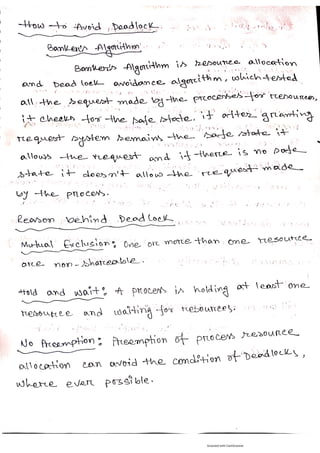 How to Avoid Deadlock
Banker's Algorithm
Banker's Algorithm is resource allocation
and Dead lock avoidance algorithm, which tested
all the request made by the processes for resources,
it checks for the safe state, if after granting
request system remains the safe state it
allows the request and if there is no safe
state it doesn't allow the request made
by the process.
Reason behind DeadLock
Mutual Exclusion: One or more than one resource
are non-shareable.
Hold and wait: A process is holding at least one
resource and waiting for resources.
No Preemption: Preemption of process resource
allocation can avoid the condition of Deadlocks,
where ever possible.
Scanned with CamScanner